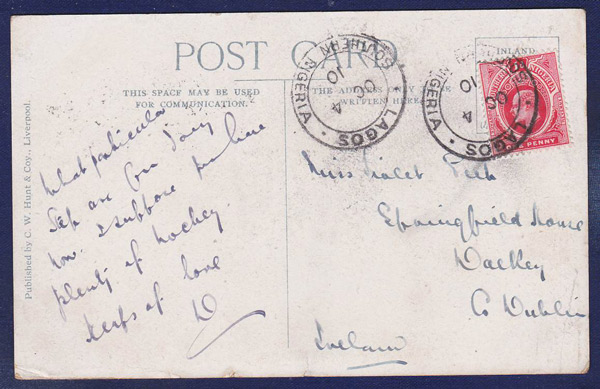 POST CARD
THIS SPACE MAY BE USED
FOR COMMUNICATION.
THE ADDRESS ONLY
WRITTEN HERE
INLAND
SOUTHERN NIGERIA
LAGOS
OC 4
10
SOUTHERN NIGERIA
LAGOS
OC 4
10
PENNY
Published by C. W. Hunt & Coy., Liverpool.
What particular
are you doing
now. I suppose you have
plenty of hockey.
Heaps of love
D
Miss Violet
Springfield House
Dalkey
Co Dublin
Ireland